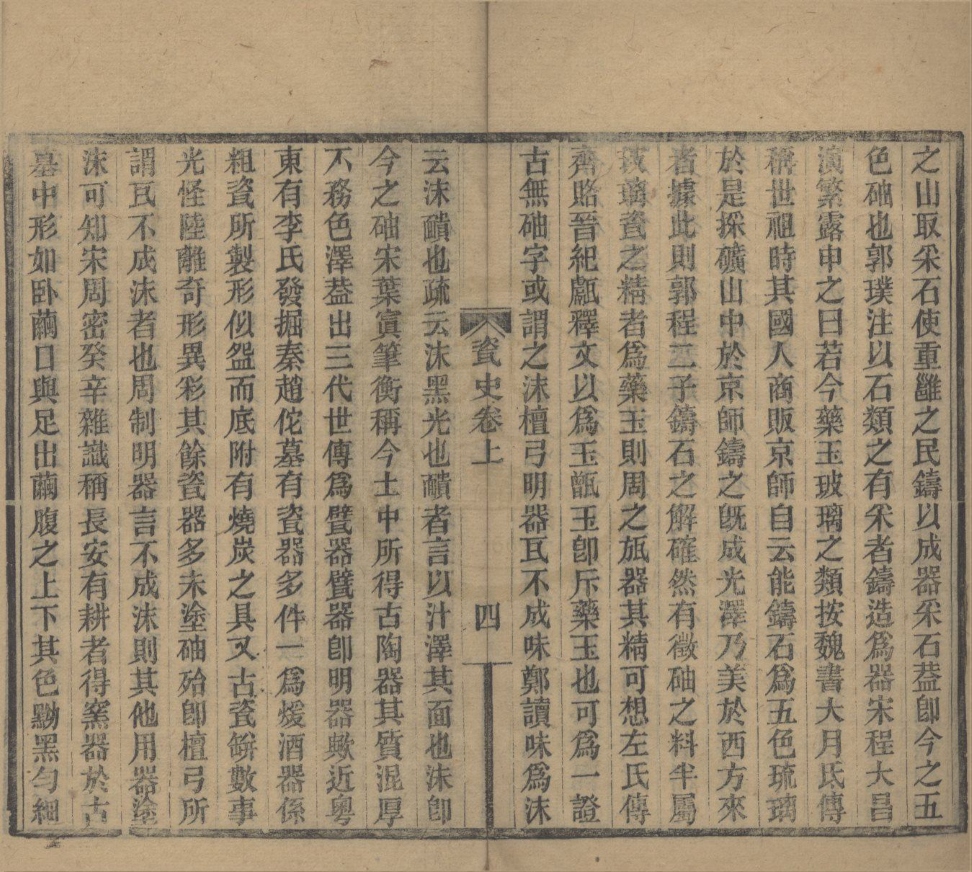 之山取采石使重雝之民鑄以成器采石葢卽今之五
色砷也郭璞注以石類之有采者鑄造爲器宋程大昌
演繁露申之曰若今藥玉玻璃之類按魏書大月氐傳
稱世祖時其國人商販京師自云能鑄石爲五色琉璃
於是採礦山中於京師鑄之旣成光澤乃美於西方來
者據此則郭程二子鑄石之解確然有徵砷之料半屬
玻璃瓷之精者爲藥玉則周之瓬器其精可想左氏傳
齊賂晉紀甗釋文以爲玉甑玉卽斥藥玉也可爲一證
古無砷字或謂之沬檀弓明器瓦不成味鄭讀味爲沬
瓷史卷上
四
云沬靧也疏云沬黑光也靧者言以汁澤其面也沬卽
今之砷宋葉寘筆衡稱今土中所得古陶器其質混厚
不務色澤葢出三代世傳爲甓器甓器卽明器歟近粵
東有李氏發掘秦趙佗墓有瓷器多件一爲煖酒器係
粗瓷所製形似盌而底附有燒炭之具又古瓷缾數事
光怪陸離奇形異彩其餘瓷器多未塗砷殆卽檀弓所
謂瓦不成沬者也周制明器言不成沬則其他用器塗
沬可知宋周密癸辛雜識稱長安有耕者得窯器於古
墓中形如卧繭口與足出繭腹之上下其色黝黑勻細